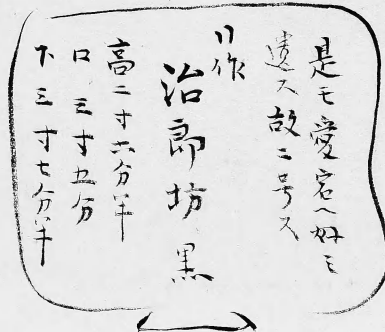 是モ愛宕ヘ好ミ
遣ス故ニ号ス
〃作
治郎坊 黒
高二寸六分半
口 三寸五分
下三寸七分半